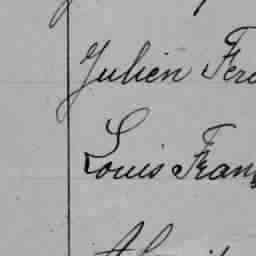 Julien Fer
Louis Fran